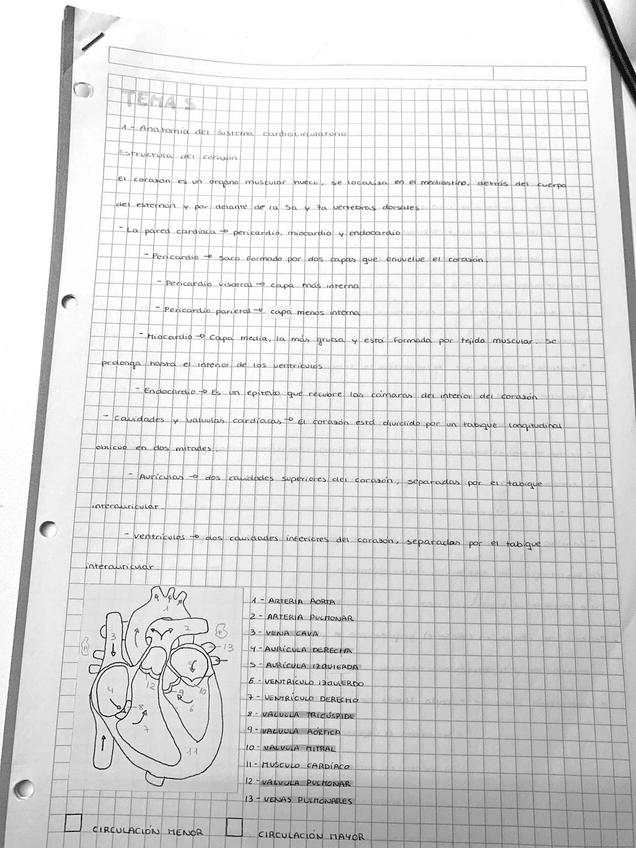 TEMA 5
1.- Anatomía del sistema cardiocirculatorio
Estructura del corazón
El corazón es un órgano muscular hueco, se localiza en el mediastino, detrás del cuerpo
del esternón y por delante de la 5a y 7a vertebras dorsales
- La pared cardíaca → pericardio, miocardio y endocardio
- Pericardio → saco formado por dos capas que envuelve el corazón.
- Pericardio visceral → capa más interna
- Pericardio parietal → capa menos interna
- Miocardio → Capa media, la más gruesa y está formada por tejido muscular. Se
prolonga hasta el interior de los ventrículos.
- Endocardio → Es un epitelio que recubre las cámaras del interior del corazón
- Cavidades y valvulas cardíacas → El corazón está dividido por un tabique longitudinal
oblicuo en dos mitades.
- Aurículas → dos cavidades superiores del corazón, separadas por el tabique
interauricular
- Ventrículos → dos cavidades inferiores del corazón, separadas por el tabique
interauricular
1 - ARTERIA AORTA
2 - ARTERIA PULMONAR
3 - VENA CAVA
4 - AURÍCULA DERECHA
5 - AURÍCULA IZQUIERDA
6 - VENTRÍCULO IZQUIERDO
7 - VENTRÍCULO DERECHO
8 - VALVULA TRICÚSPIDE
9 - VALVULA AÓRTICA
10 - VALVULA MITRAL
11 - MUSCULO CARDÍACO
12 - VALVULA PULMONAR
13 - VENAS PULMONARES
1
2
3
13
4
12
9
10
8
6
7
11
CIRCULACIÓN MENOR
CIRCULACIÓN MAYOR